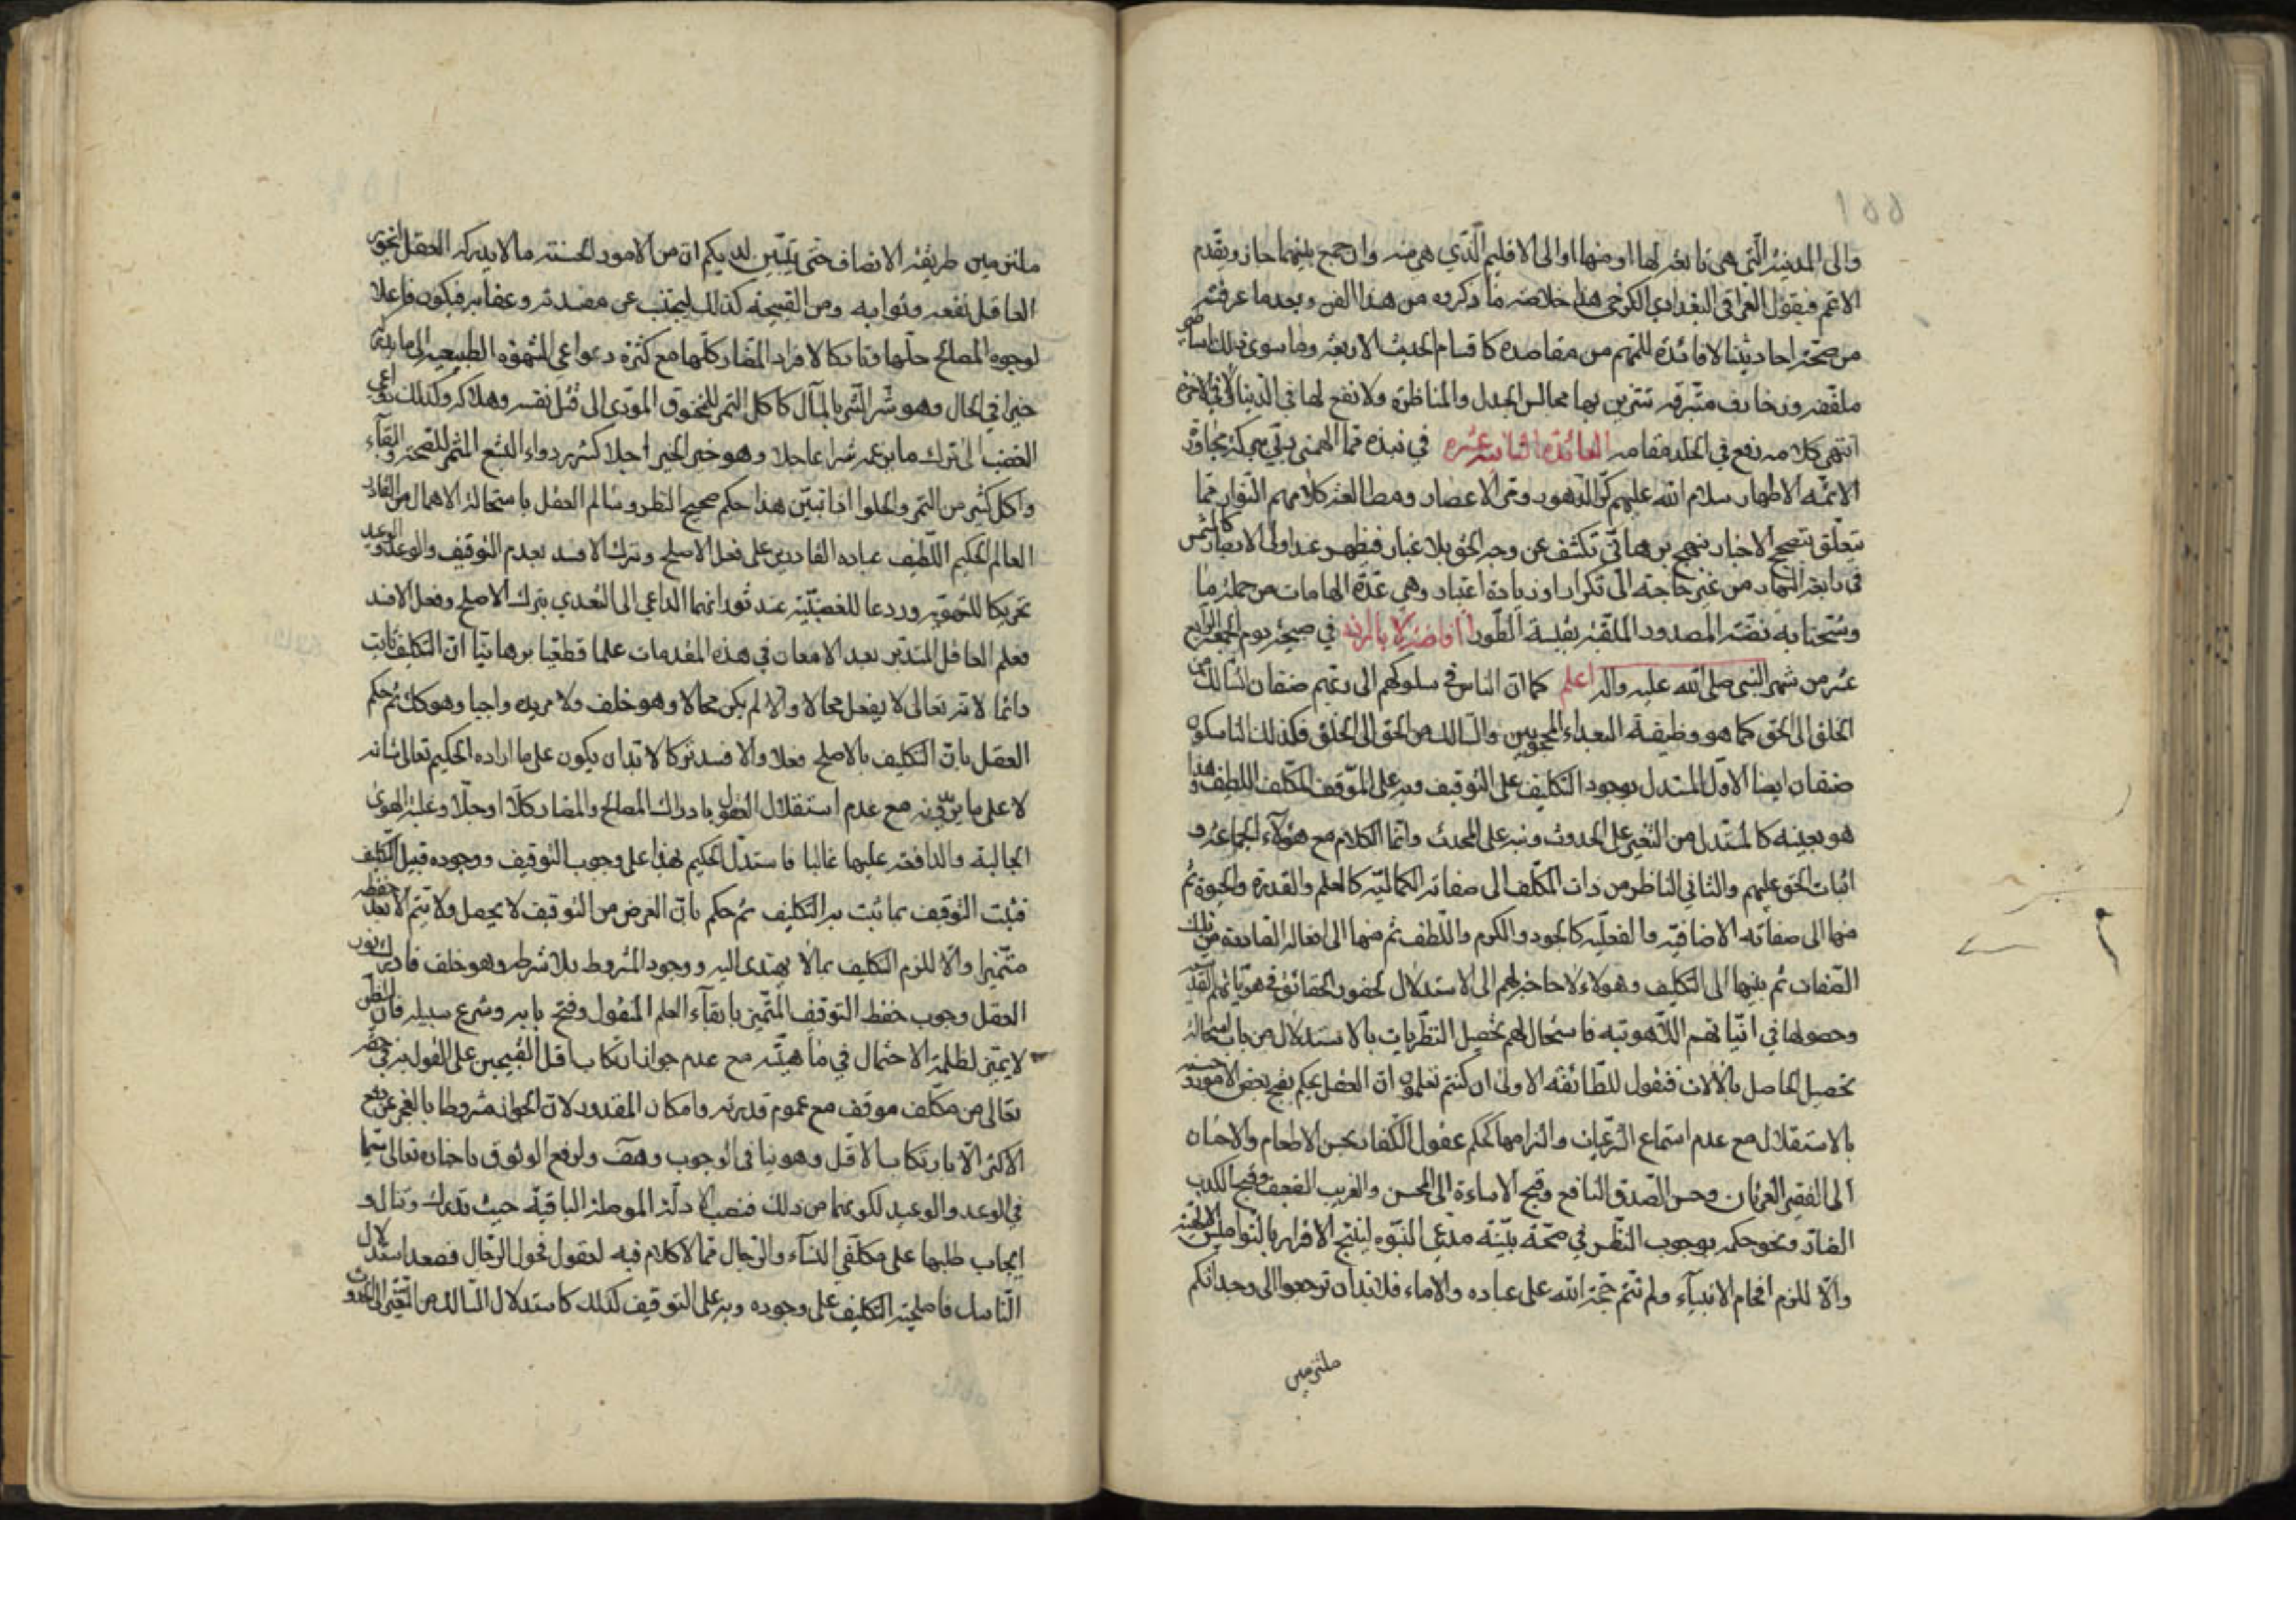 والى المدينة التي هي تابعة لها او منها او الى الاقليم الذي هي منه وان جمع بينهما جاز ويقدم
الاعم فيقول العراقي البغدادي الكرخي هذا خلاصة ما ذكروه من هذا الفن وبعد ما عرفت
من صحة احاديثنا لا فائدة للمهم من مقاصده كاقسام الحديث الاربعة وما سوى ذلك
ملفقة وزخارف تتزين بها مجالس الجدل والمناظرة ولا نفع لها في الدنيا ولا في الاخرة
انتهى كلامه رفع في الخلد مقامه الفائدة الثانية عشره في نبذة مما الهمني ربي ببركة مجاورة
الائمه الاطهار سلام الله عليهم كر الدهور ومر الاعصار ومطالعة كلامهم النوار مما
يتعلق بتصحيح الاخبار بنهج برهاني تكشف عن وجه الحق بلا غبار فيظهر عند اولى الابصار كالشمس
في رابعة النهار من غير حاجة الى تكرار او زيادة اعتبار وهي عدة الهامات من جملة ما
وشحنا به نفثة المصدور الملقبة بقبسة الطور افاضه في صبيحة يوم الجمعة الرابع
عشر من شهر النبي صلى الله عليه واله اعلم كما ان الناس في سلوكهم الى ربهم صنفان السالك من
الخلق الى الحق كما هو وظيفة البعداء المحجوبين والسالك من الحق الى الخلق فكذلك الناسكون
صنفان ايضا الاول المستدل بوجود التكليف على التوقيف وبه على الموقف المكلف اللطيف وهذا
هو بعينه كالمستدل من التغير على الحدوث وبه على المحدث وانما الكلام مع هؤلاء الجماعة و
اثبات الحق عليهم والثاني الناظر من ذات المكلف الى صفاته الكمالية كالعلم والقدرة والحيوة ثم
منها الى صفاته الاضافية والفعلية كالجود والكرم واللطف ثم منها الى افعاله الصادرة من تلك
الصفات ثم بينها الى التكليف وهولاء لا حاجة لهم الى الاستدلال لحضور الحقائق في هوياتهم القدسية
وحصولها في انياتهم اللاهوتيه فاستحال لهم تحصيل النظريات بالاستدلال من باب استحالة
تحصيل الحاصل بالآلات فنقول للطائفه الاولى ان كنتم تعلمون ان العقل يحكم بقبح بعض الامور وحسنه
بالاستقلال مع عدم استماع الشرعيات والتزامها كحكم عقول الكفار بحسن الاطعام والاحسان
الى الفقير العريان وحسن الصدق النافع وقبح الاساءة الى المحسن والغريب الضعيف وقبح الكذب
الضار ونحو حكمه بوجوب النظر في صحة بينة مدعي النبوه لينتج الاقرار بالنواميس الالهية
والا للزم افحام الانبياء ولم تتم حجة الله على عباده والاماء فلابد ان ترجعوا الى وجدانكم
ملتزمين
ملتزمين طريقة الانصاف حتى يتبين لديكم ان من الامور الحسنة ما لا يدركه العقل
العاقل نفعه وثوابه ومن القبيحة كذلك ليجتنب عن مفسدته وعقابه فيكون فاعلا
لوجوه المصالح جلها وتاركا لافراد المضار كلها مع كثرة دعواعي الشهوة الطبيعيه الى ما يريه
خيرا في الحال وهو شر الشر بالمآل كاكل التمر للمحروق المؤدى الى قتل نفسه وهلاكه وكذلك دواعي
الغضب الى ترك ما يزعمه شرا عاجلا وهو خير الخير اجلا كشربه دواء البشع المثمر للصحة والبقآء
واكل كثير من التمر والحلوا اذا تبين هذا حكم صحيح النظر وسالم العقل باستحالة الاهمال من القادر
العالم الحكيم اللطيف عباده القادرين على فعل الاصلح وترك الافسد بعدم التوقيف والوعد والوعيد
تحريكا للشهوية وردعا للغضبية عند ثورانهما الداعي الى التعدي بترك الاصلح وفعل الافسد
فعلم العاقل المتدبر بعد الامعان في هذه المقدمات علما قطعيا برهانيا ان التكليف ثابت
دائما لانه تعالى لا يفعل محالا والا لم يكن محالا وهو خلف ولا مريده واجبا وهو كك ثم حكم
العقل بان التكليف بالاصلح فعلا والافسد تركا لابد ان يكون على ما اراده الحكيم تعالى شانه
لا على ما يرتئيه مع عدم استقلال العقول بادراك المصالح والمضار كلا او جلا وغلبة الهوى
الجالبة والدافعة عليهما غالبا فاستدل الحكيم بهذا على وجوب التوقيف ووجوده قبيل التكليف
فثبت التوقيف بما ثبت به التكليف ثم حكم بان الغرض من التوقيف لا يحصل ولا يتم الا بعد حفظه
متميزا والا للزم التكليف بما لا يهتدى اليه ووجود المشروط بلا شرطه وهو خلف فادرك بنور
العقل وجوب حفظ التوقيف المتميز بابقآء العلم المنقول وفتح بابه وشرع سبيله فان الظن
لا يميز لظلمة الاحتمال في ماهيته مع عدم جواز ارتكاب اقل القبيحين على القول به في حقه
تعالى من مكلف موقف مع عموم قدرته وامكان المقدور لان الجواز مشروط بالعجز عن دفع
الاكثر الا بارتكاب الاقل وهو ينافي الوجوب وهف ولرفع الوثوق باخباره تعالى سيما
في الوعد والوعيد لكونهما من ذلك فنصب الادلة الموصلة الباقية حيث تدرك وتنال و
ايجاب طلبها على مكلفي النسآء والرجال مما لا كلام فيه لعقول فحول الرجال فصعد استدلال
الناسك فاصلحية التكليف على وجوده وبه على التوقيف كذلك كاستدلال السالك من التغير الى الحدوث